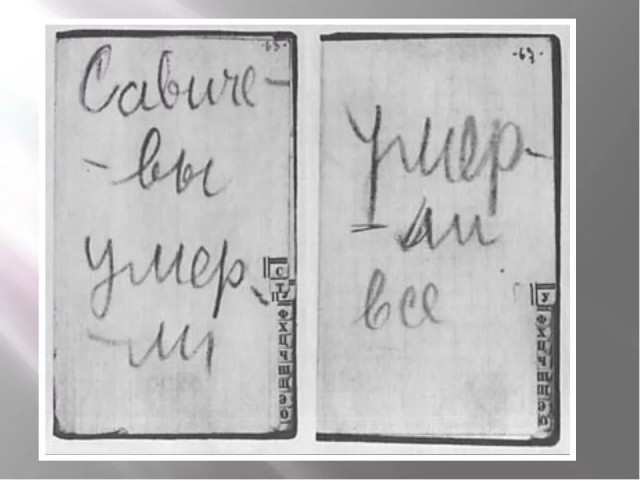 ·65·
Савиче-
-вы
умер
-ли
С
Т
У
Ф
Х
Ц
Ч
Ш
Щ
Э
Ю
·67·
Умер-
-ли
все
У
Ф
Х
Ц
Ч
Ш
Щ
Э
Ю